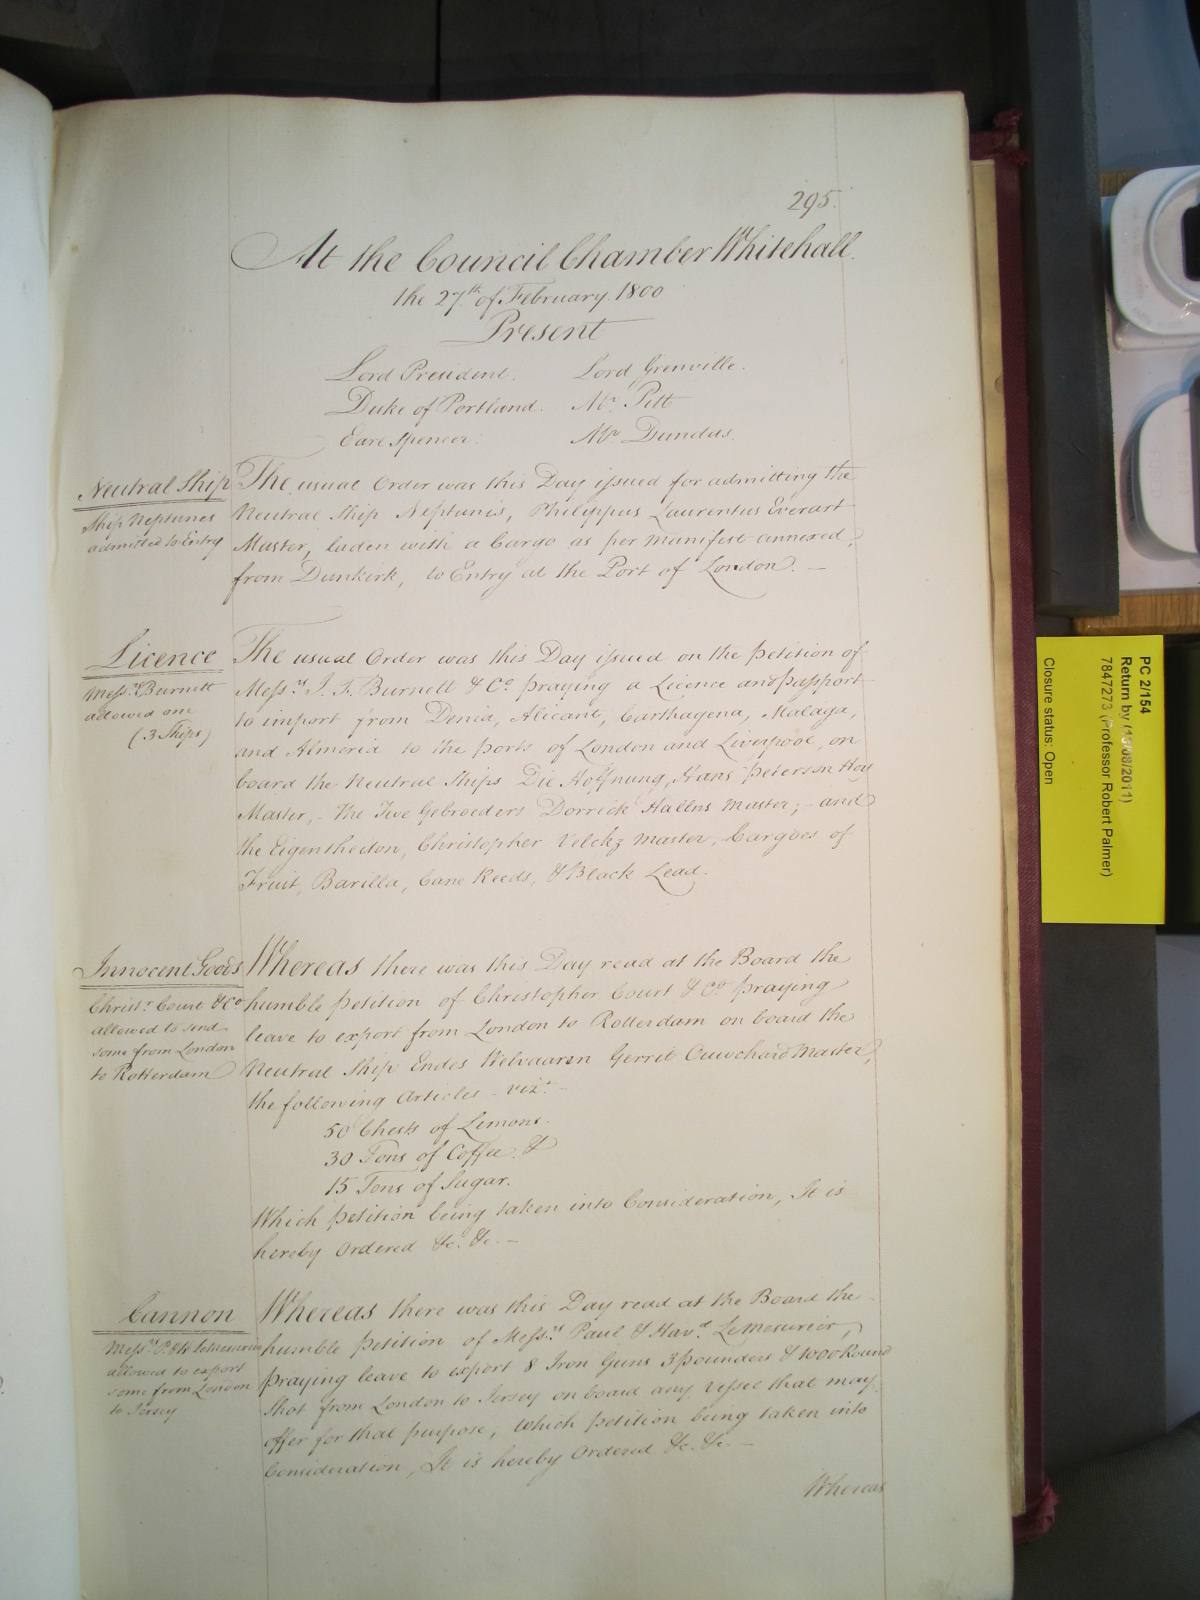 295.
At the Council Chamber Whitehall.
the 27th of February. 1800
Present
Lord President. Lord Grenville.
Duke of Portland. Mr. Pitt
Earl Spencer. Mr Dundas.
Neutral Ship
Ship Neptunes
admitted to Entry
The usual Order was this Day issued for admitting the
Neutral Ship Neptunis, Philippus Laurentus Everart
Master, laden with a Cargo as per Manifest annexed,
from Dunkirk, to Entry at the Port of London. —
Licence
Messrs. Burnett
allowed one
(3 Ships)
The usual Order was this Day issued on the Petition of
Messrs. J. T. Burnett & Co. praying a Licence and Passport
to import from Denia, Alicant, Carthagena, Malaga,
and Almeria to the Ports of London and Liverpool, on
board the Neutral Ships Die Hoffnung, Hans Peterson Hoy
Master, - the Twe Gebroeders Dorrick Hallens Master; - and
the Eigentheiton, Christopher Velckz Master, Cargoes of
Fruit, Barilla, Cane Reeds, & Black Lead.
Innocent Goods
Christr. Court & Co
allowed to send
some from London
to Rotterdam
Whereas there was this Day read at the Board the
humble Petition of Christopher Court & Co. praying
leave to export from London to Rotterdam on board the
Neutral Ship Endes Welvaaren Gerrit Master,
the following Articles - vizt. -
50 Chests of Lemons.
30 Tons of Coffee. &
15 Tons of Sugar.
Which Petition being taken into Consideration, It is
hereby Ordered &c. &c. —
Cannon
Messrs. P. & H. Lemesurier
allowed to export
some from London
to Jersey
Whereas there was this Day read at the Board the
humble Petition of Messrs. Paul & Havd. Lemesurier,
praying leave to export 8 Iron Guns 3 pounders & 1000 Round
Shot from London to Jersey on board any Vessel that may
offer for that purpose, which Petition being taken into
Consideration, It is hereby Ordered &c. &c. —
Whereas
PC 2/154
Return by (13/08/2011)
7847273 (Professor Robert Palmer)
Closure status: Open